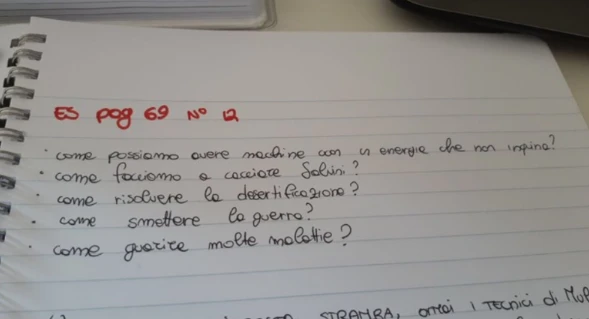 ES pag 69 N° 12
· come possiamo avere macchine con un energia che non inquina?
· come facciamo a cacciare Salvini?
· come risolvere la desertificazione?
· come smettere la guerra?
· come guarire molte malattie?
STRAMBA, ormai i TECNICI di